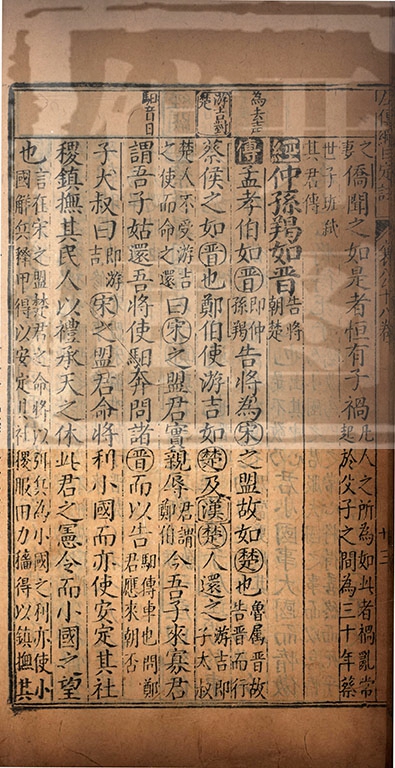 之僑聞之如是者恒有子禍凡人之所為如此者禍亂常起於父子之間為三十年蔡
世子班弒其君傳
經仲孫羯如晉告將朝楚
傳孟孝伯如晉即仲孫羯告將為宋之盟故如楚也魯屬晉故告晉而行
蔡侯之如晉也鄭伯使游吉如楚及漢楚人還之游吉即子太叔
楚人不受游吉之使而命之還曰宋之盟君實親辱君謂鄭伯今吾子來寡君
謂吾子姑還吾將使馹奔問諸晉而以告馹傳車也問鄭君應來朝否
子大叔曰即游吉宋之盟君命將利小國而亦使安定其社
稷鎮撫其民人以禮承天之休此君之憲令而小國之望
也言在宋之盟楚君之命將以弭兵為小國之利亦使小國解兵釋甲得以安定其社稷服田力穡得以鎮撫其
為去声
馹音日